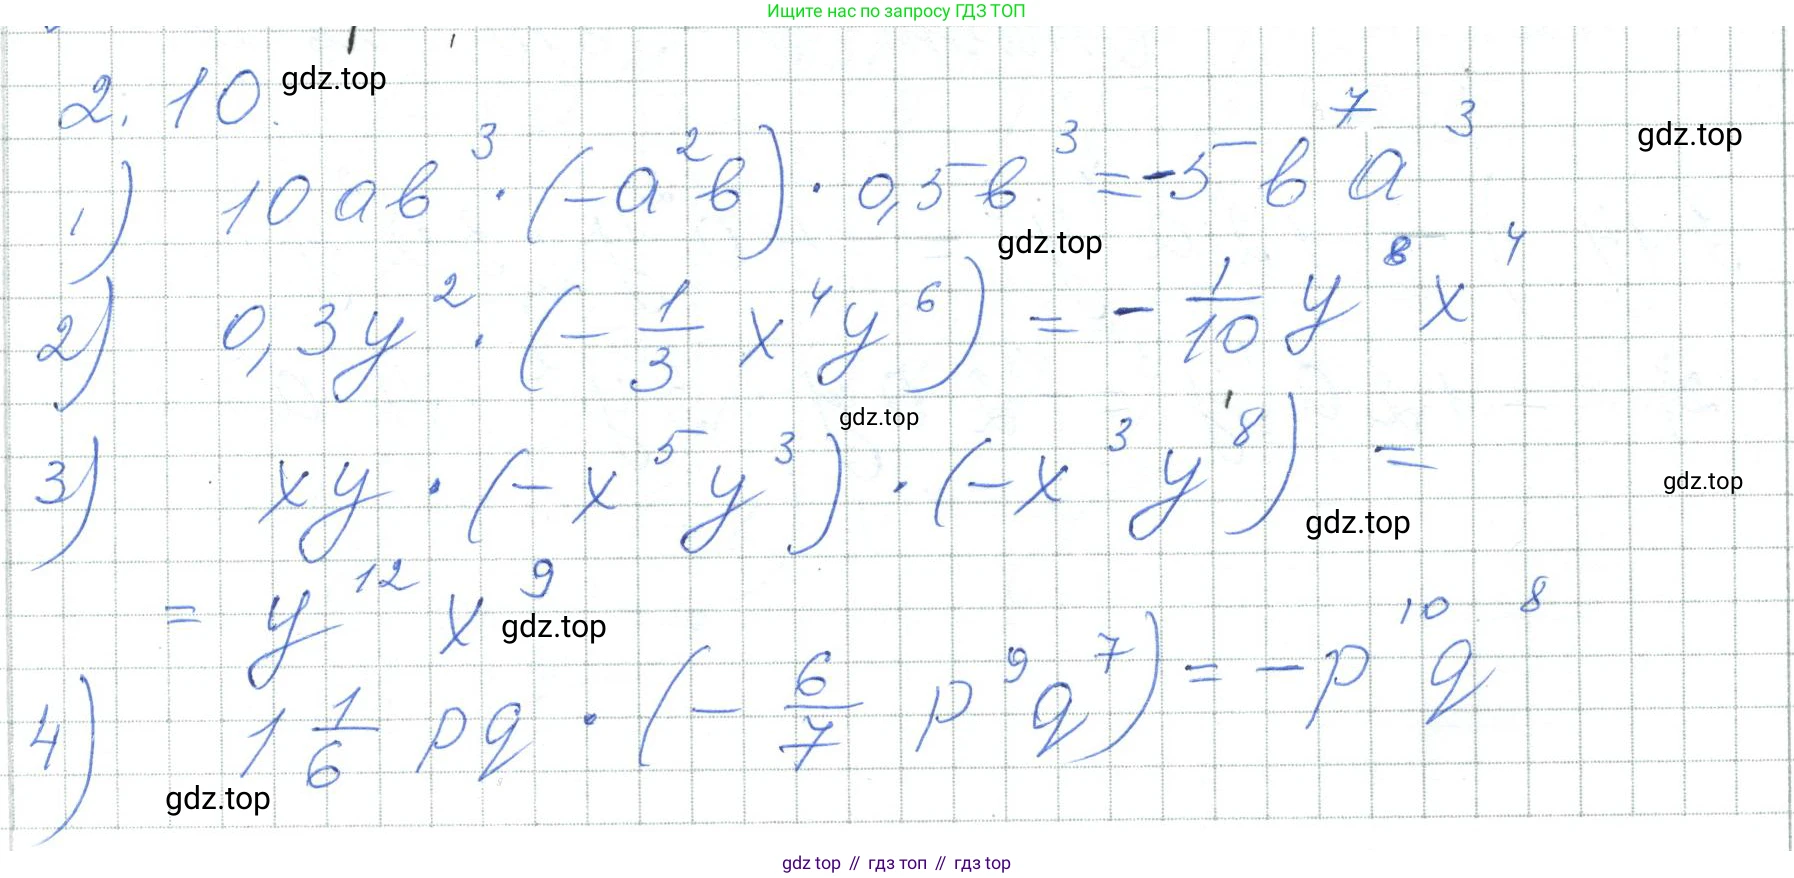 Ищите нас по запросу ГДЗ ТОП
2.10. gdz.top
gdz.top
1) 10ab³ · (-a²b) · 0,5b³ = -5b⁷a³
gdz.top
2) 0,3y² · (-1/3 x⁴y⁶) = -1/10 y⁸x⁴
gdz.top
3) xy · (-x⁵y³) · (-x³y⁸) =
gdz.top
gdz.top
= y¹²x⁹ gdz.top
4) 1 1/6 pq · (-6/7 p⁹q⁷) = -p¹⁰q⁸
gdz.top
gdz top // гдз топ // гдз top